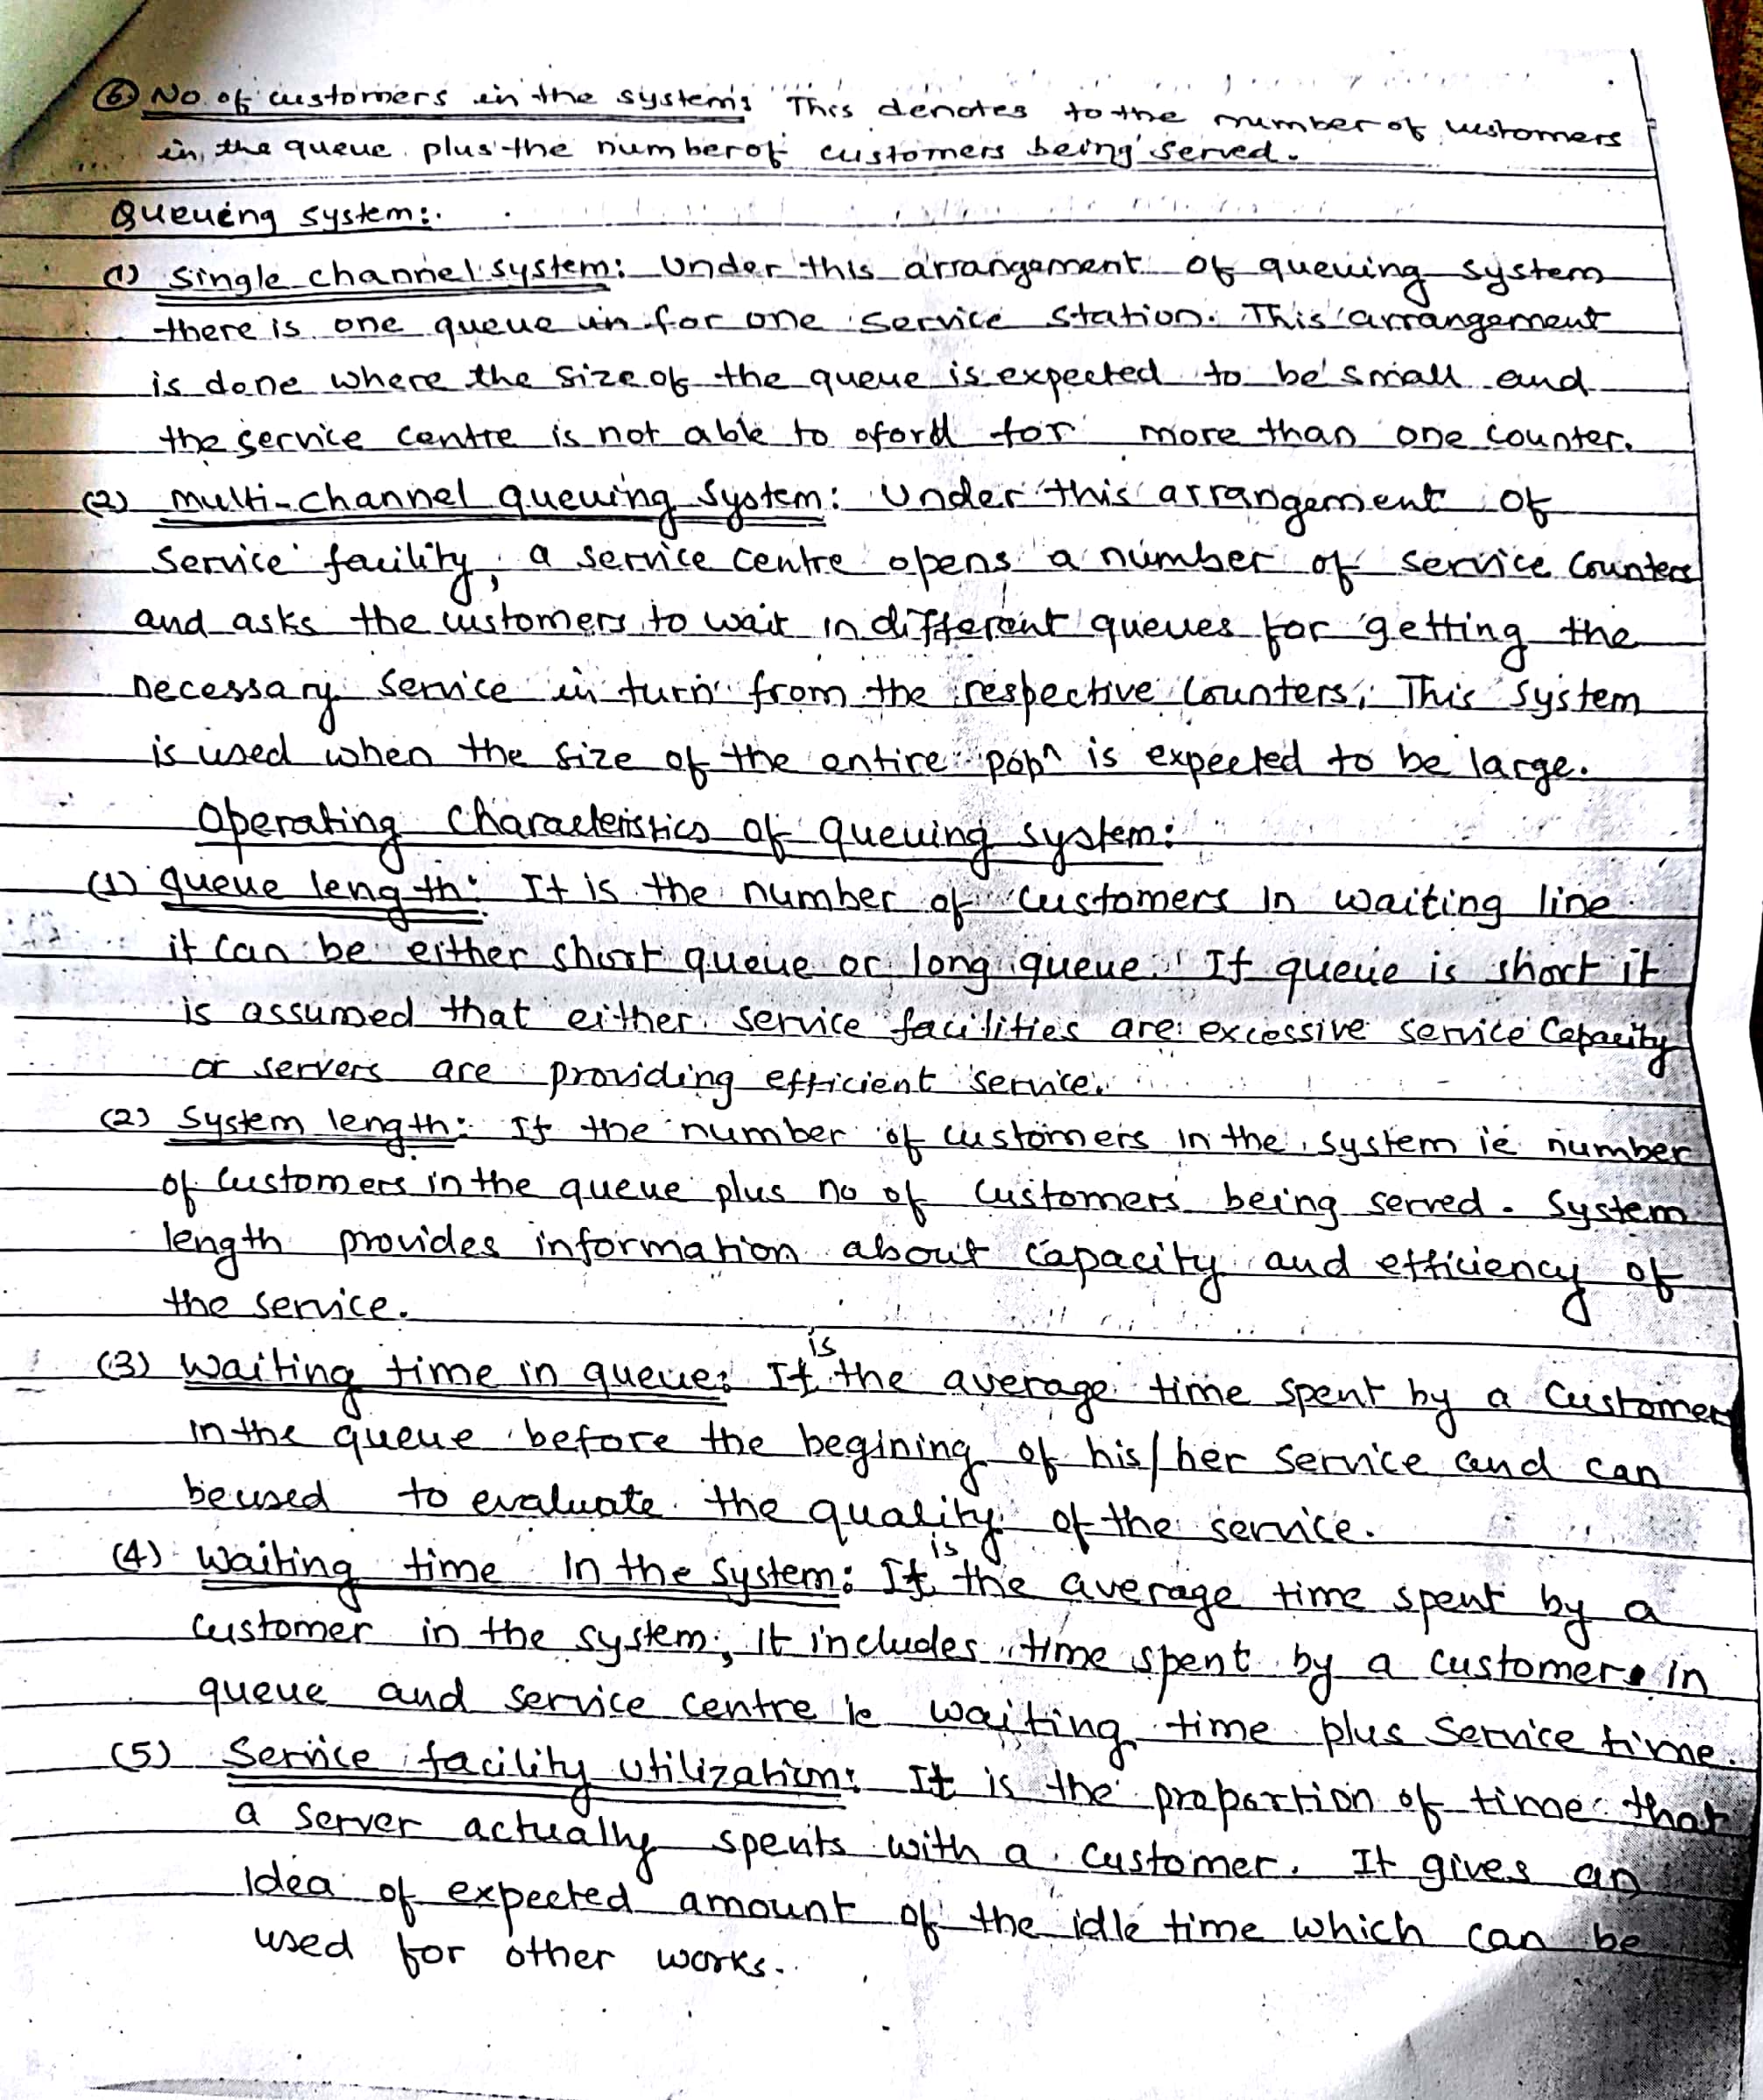 ⑥ No. of customers in the system: This denotes to the number of customers
in the queue plus the number of customers being served.
Queueing system:
(1) Single channel system: Under this arrangement of queuing system
there is one queue in for one service station. This arrangement
is done where the size of the queue is expected to be small and
the service centre is not able to oford for more than one counter.
(2) Multi-channel queuing system: Under this arrangement of
service facility, a service centre opens a number of service counters
and asks the customers to wait in different queues for getting the
necessary service in turn from the respective counters. This system
is used when the size of the entire popⁿ is expected to be large.
Operating characteristics of queuing system:
(1) queue length: It is the number of customers in waiting line
it can be either short queue or long queue. If queue is short it
is assumed that either service facilities are excessive service capacity
or servers are providing efficient service.
(2) System length: If the number of customers in the system ie number
of customers in the queue plus no of customers being served. System
length provides information about capacity and efficiency of
the service.
(3) Waiting time in queue: It is the average time spent by a customer
in the queue before the begining of his/her service and can
be used to evaluate the quality of the service.
(4) Waiting time in the system: It is the average time spent by a
customer in the system, it includes time spent by a customer in
queue and service centre ie waiting time plus service time.
(5) Service facility utilization: It is the proportion of time that
a server actually spents with a customer. It gives an
idea of expected amount of the idle time which can be
used for other works.